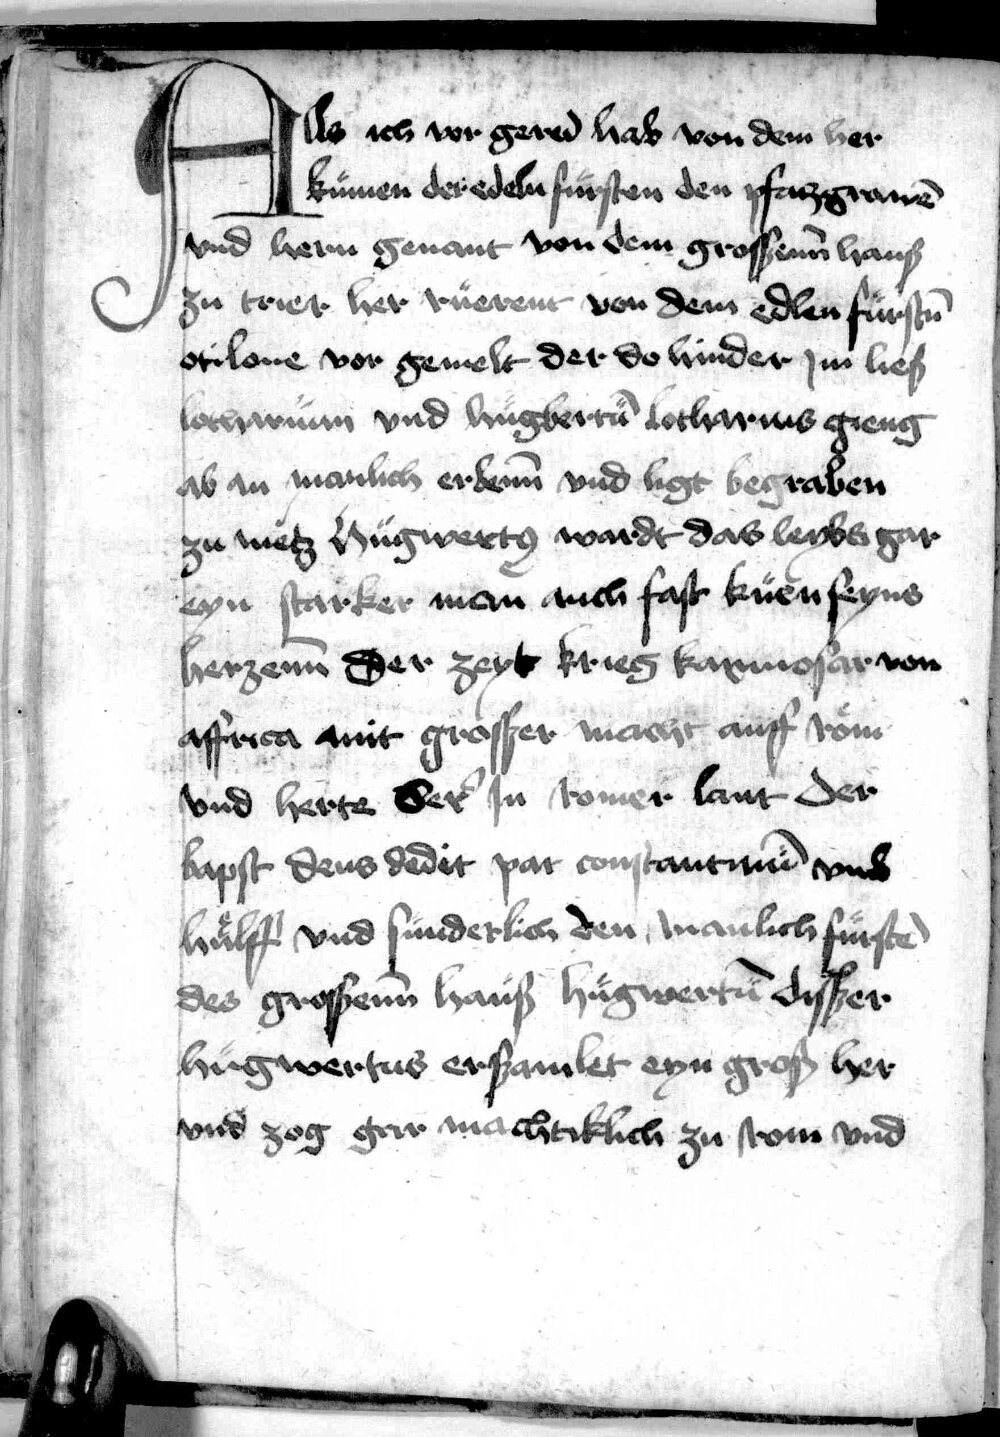 Als ich vor gered hab von dem her
kümen der edeln fürsten den pfalczgrauē
vnd hern genant von dem grosßenn̄ hauß
zu trier her rüerent von dem edlen fürstn̄
otilone vor gemelt der do hinder Im ließ
lotharium vnd hügbertū lotharius gieng
ab an manlich erbenn̄ vnd ligt begraben
zu metz Hügwertꝰ wardt das leybs gar
eyn starker man auch fast küen seyns
herzenn̄ Der zeyt krieg karmosar von
affrica mit grosßer macht auff röm
vnd herte ser In romer lant Der
bapst deus dedit pat constantinū vmb
hülff vnd sunderlich den manlich fürstē
des grosßenn̄ hauß hügwertū disßer
hügwertus ersßamlet eyn groß her
vnd zog gar machtiklich zu rom vnd